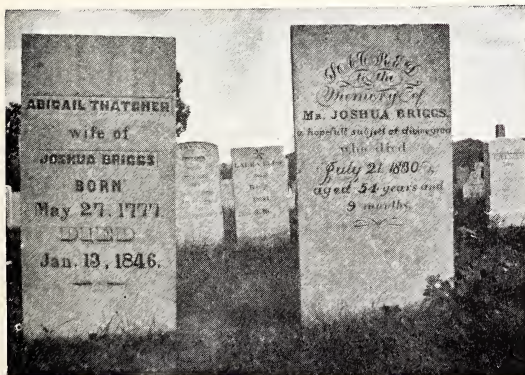 ABIGAIL THATCHER
wife of
JOSHUA BRIGGS
BORN
May 27. 1777
DIED
Jan. 13, 1846.
Sacred
to the
Memory of
Mr. JOSHUA BRIGGS.
a hopefull subject of divine grace
who died
July 21 1830
aged 54 years and
9 months.